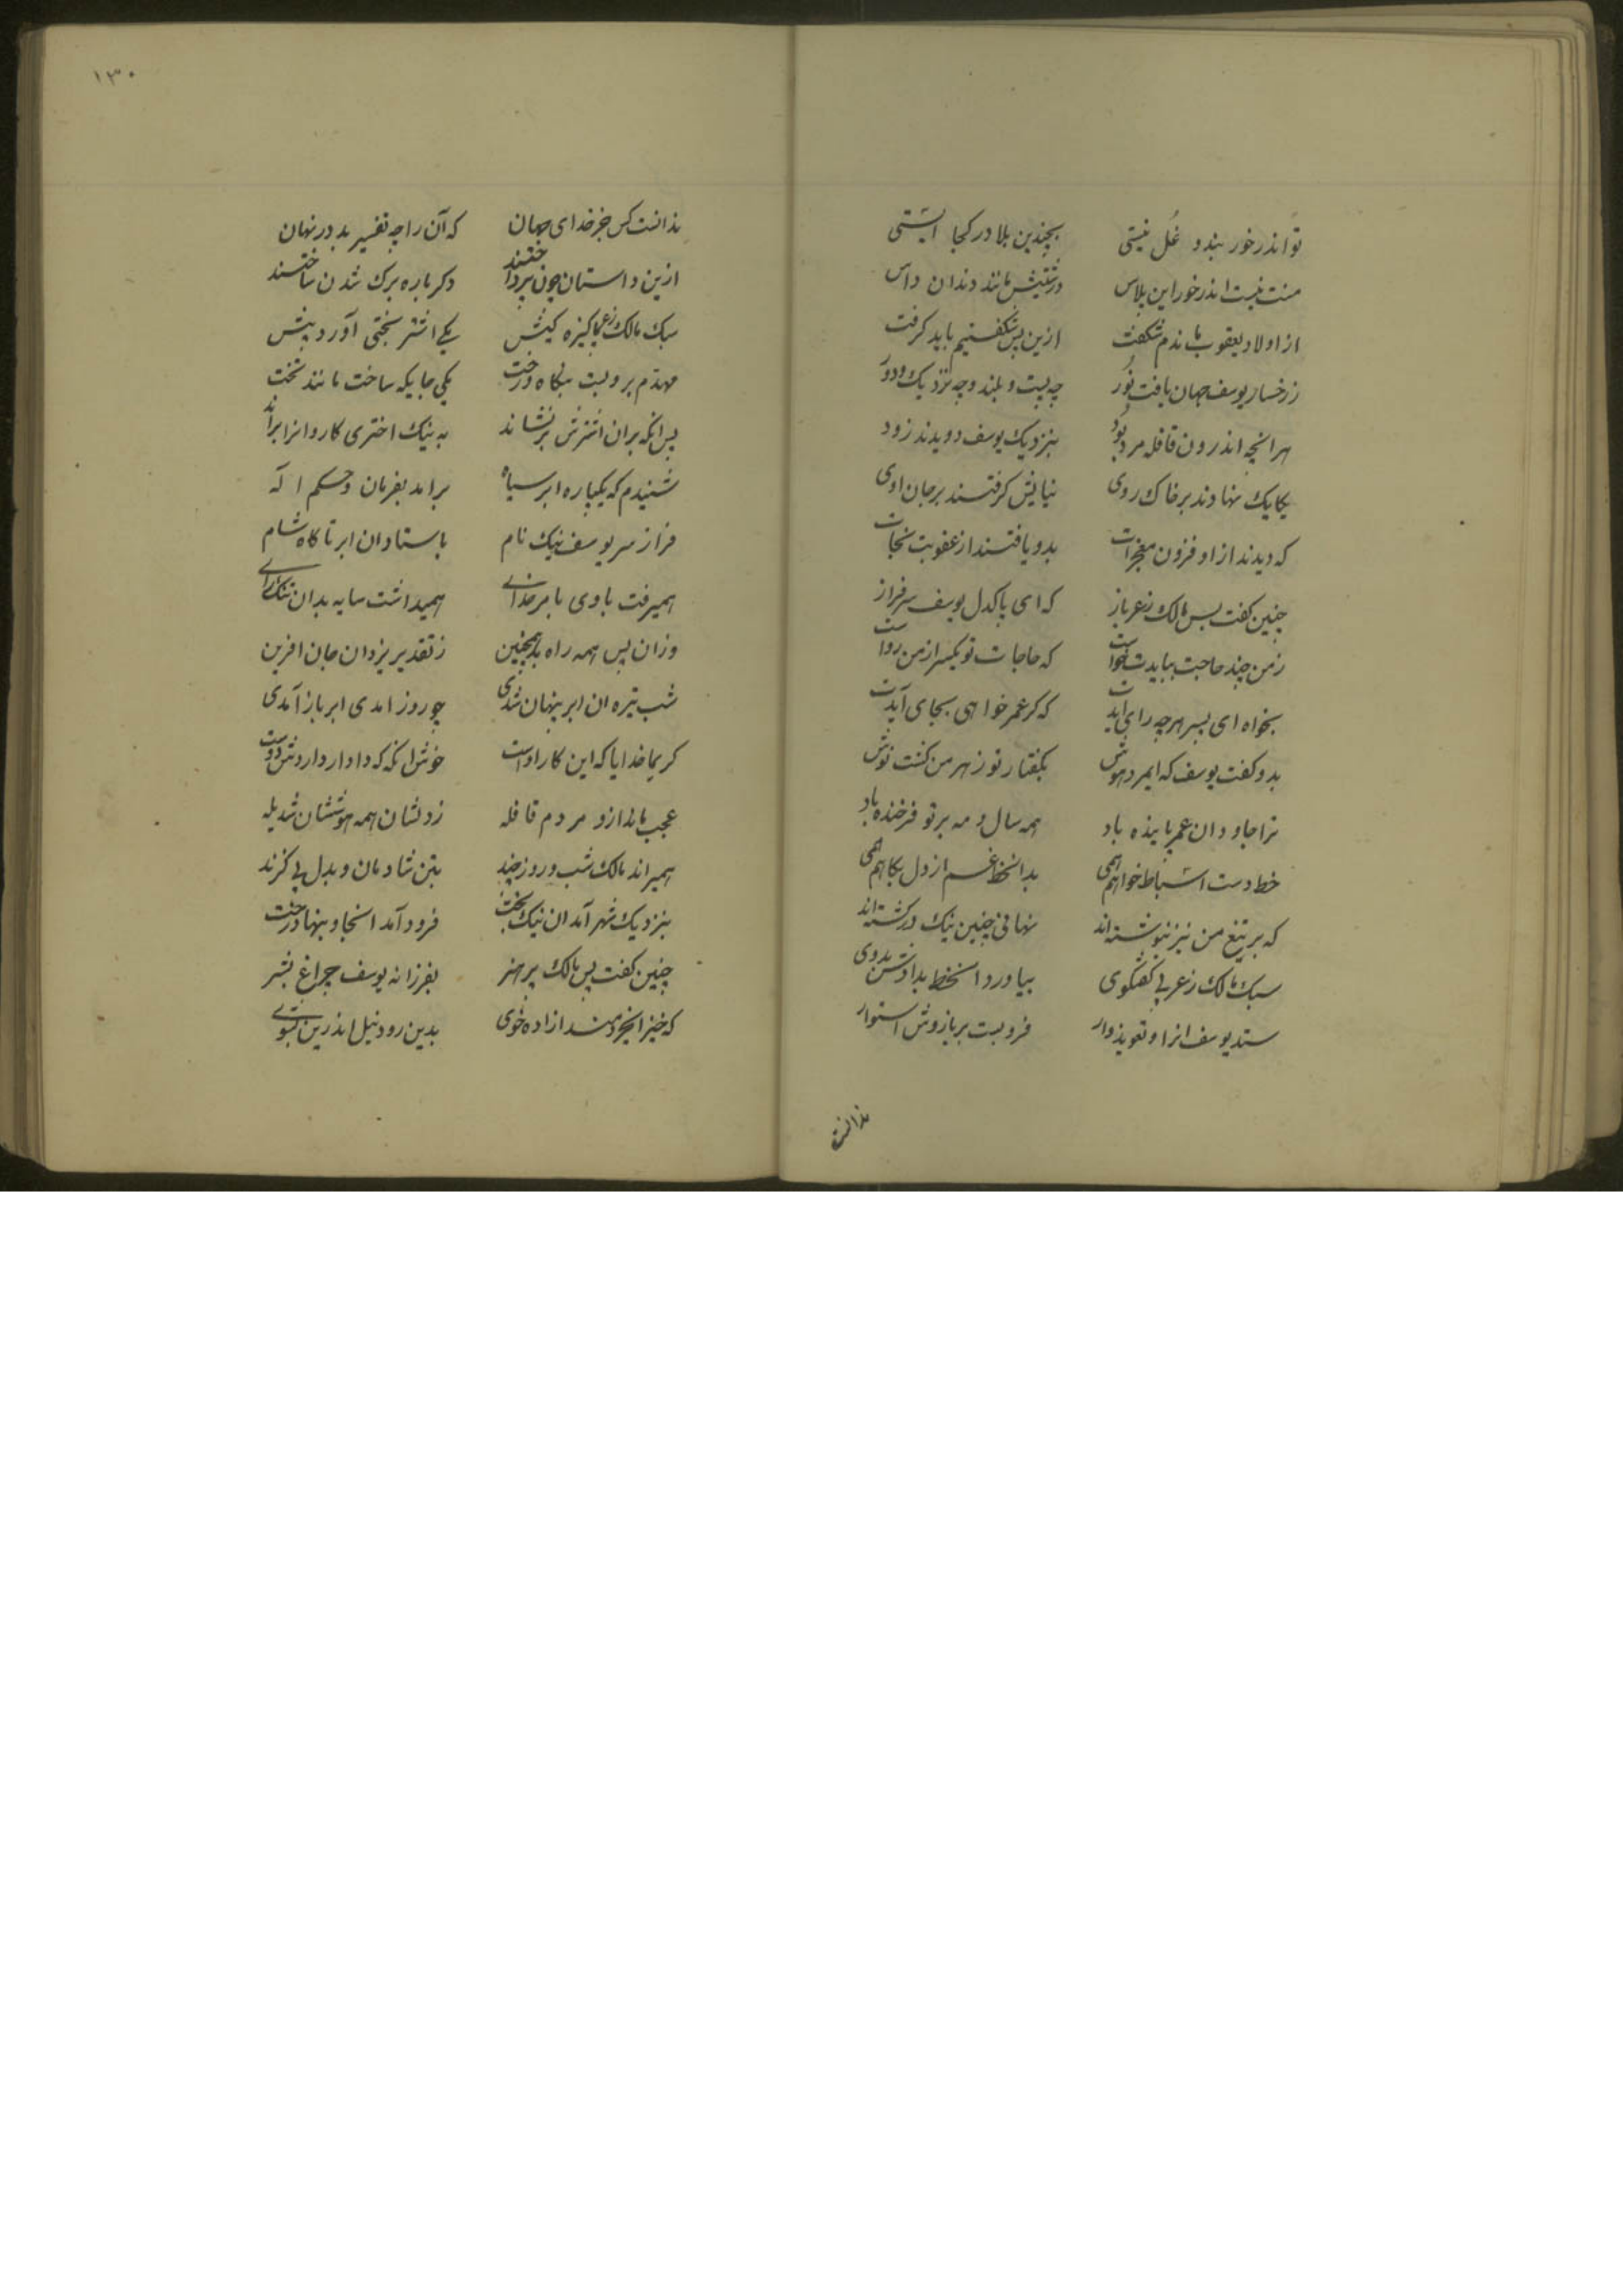 تو اندر خور بند و غُل نیستی بچندین بلا در کجا ایستی
منت نیست اندر خور این پلاس درشتیش مانند دندان داس
از اولاد یعقوب ماندم شکفت ازین پس شکفتیم باید کرفت
ز رخسار یوسف جهان یافت نور چه پست و بلند و چه نزدیک و دور
هر انچه اندرون قافله مرد بود بنزدیک یوسف دویدند زود
یکایک نهادند بر خاک روی نیایش کرفتند بر جان اوی
که دیدند از او فزون معجزات بدو یافتند از عقوبت نجات
چنین کفت پس مالک زعر باز که ای پاکدل یوسف سرفراز
ز من چند حاجت بیایدت خواست که حاجات تو یکسر از من رواست
بخواه ای پسر هرچه رای ایدت که کر عمر خواهی بجای آیدت
بدو کفت یوسف که ایمرد هوش بکفتار تو زهر من کشت نوش
ترا جاودان عمر پاینده باد همه سال و مه بر تو فرخنده باد
خط دست اسباط خواهم همی بدانخط غم از دل بکاهم همی
که بر تیغ من نیز ننوشته‌اند نهانی چنین نیک در کشته‌اند
سبک مالک زعر بی کفتکوی بیاورد انخط بدادش بدوی
ستد یوسف انرا و تعویذوار فرو بست بر بازوش استوار
ندانست
۱۳۰
ندانست کس جز خدای جهان که آن را چه تفسیر بد در نهان
ازین داستان چون بپرداختند دکرباره برک شدن ساختند
سبک مالک زعر پاکیزه کیش یکی اشتر بختی آورد پیش
مهدم برو بست بنکاه و رخت یکی جایکه ساخت مانند تخت
پس انکه بران اشترش برنشاند به نیک اختری کاروانرا براند
شنیدم که یکپاره ابر سیاه برامد بفرمان و حکم اله
فراز سر یوسف نیک نام باستاد ان ابر تا کاه شام
همیرفت با وی بامر خدای همیداشت سایه بدان نیکرای
وزان پس همه راه بد همچنین ز تقدیر یزدان جان افرین
شب تیره ان ابر پنهان شدی چو روز امدی ابر باز آمدی
کریما خدایا که این کار اوست خوش انکه که دادار داردش دوست
عجب ماند ازو مردم قافله ز دلشان همه هوششان شد یله
همیراند مالک شب و روز چند بتن شادمان و بدل بی کزند
بنزدیک شهر آمد ان نیک بخت فرود آمد انجا و بنهاد رخت
چنین کفت پس مالک پر هنر بفرزانه یوسف چراغ بشر
که خیز ایخردمند ازاده خوی بدین رود نیل اندر این تن بشوی